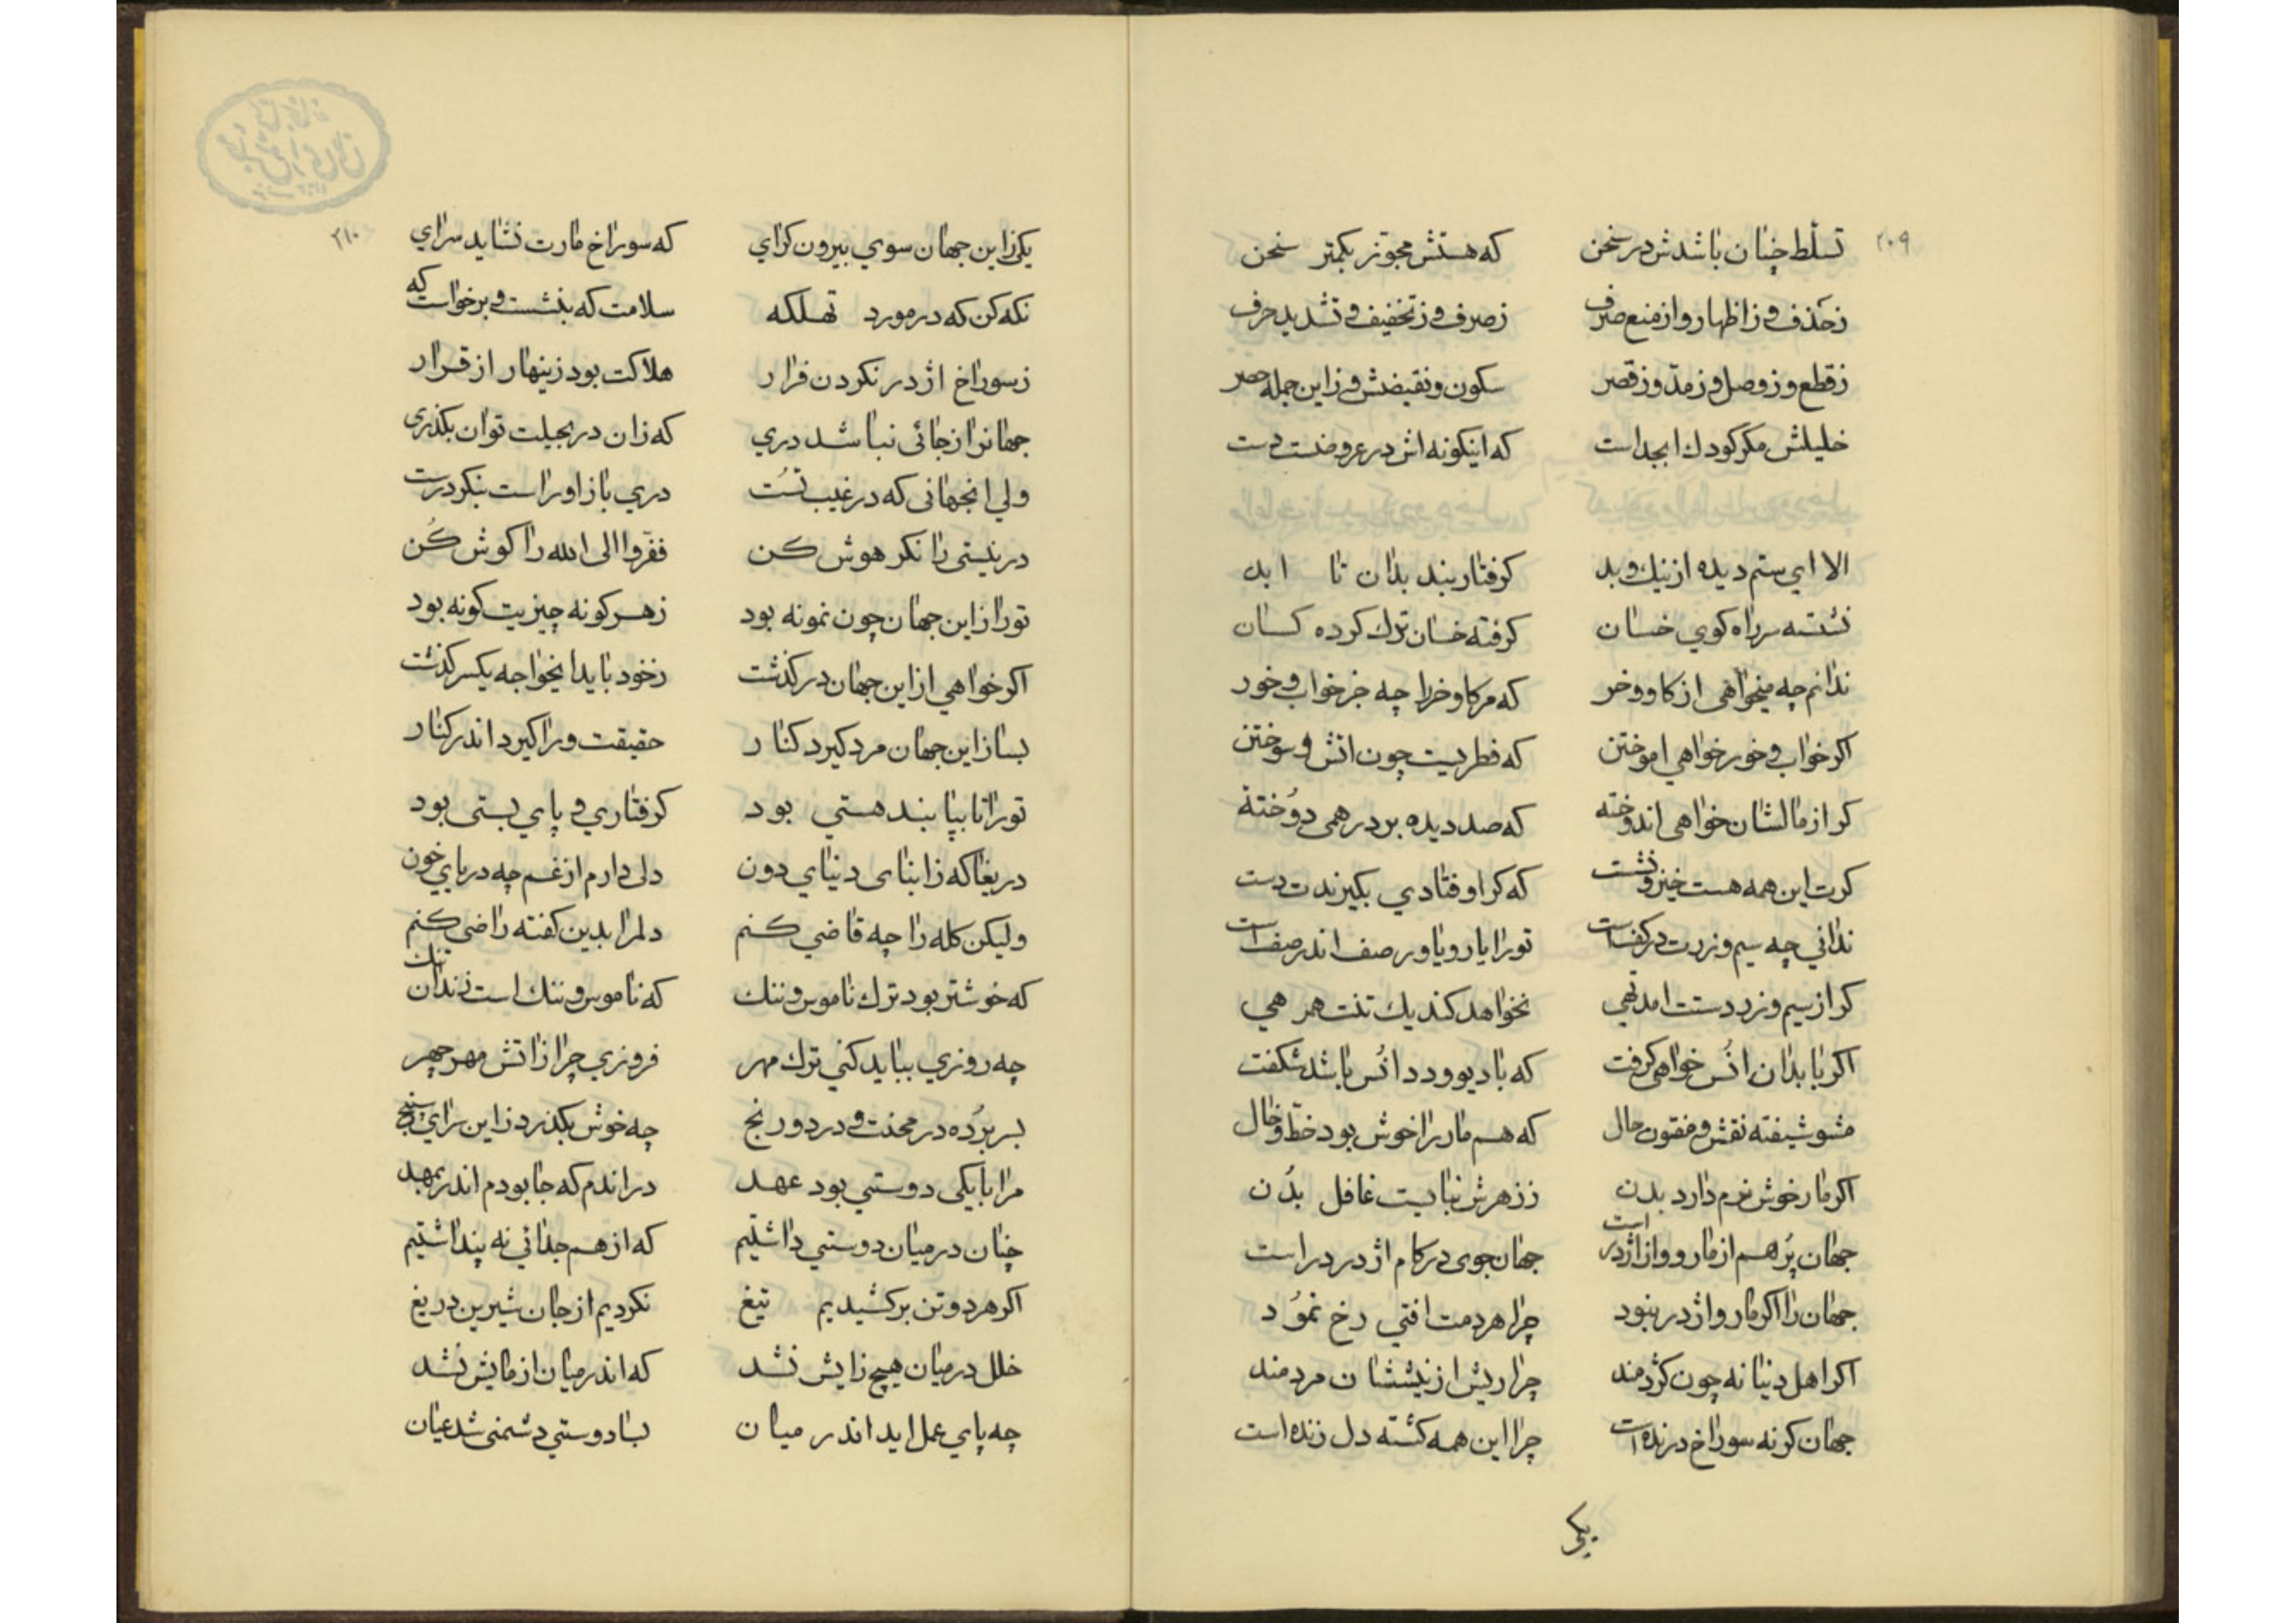 ۲۰۹
تسلّط چنان باشدش در سخن که هستش مجوّز بکمتر سخن
ز حذف و ز اظهار و از منع صرف ز صرف و ز تخفیف و تشدید حرف
ز قطع و ز وصل و ز مدّ و ز قصر سکون و نقیضش و زاین جمله حصر
خلیلش مکر کودك ابجد است که اینکونه اش در عروضست دست
الا ای ستم دیده از نیك و بد کرفتار بند بدان تا ابد
نشسته سر راه کوی خسان کرفته خسان ترك کرده کسان
ندانم چه میخواهی از کاو و خر که مر کاو خر را چه جز خواب و خور
اکر خواب و خور خواهی اموختن که فطریست چون اتش و سوختن
کر از مالشان خواهی اندوخته که صد دیده بر درهمی دوُخته
کرت این همه هست خیز و نشست که کر اوفتادی بکیرندت دست
ندانی چه سیم و زرت در کفست تو را یار و یاور صف اندر صف است
کر از سیم و زر دستت امد تهی نخواهد کند یك تنت همرهی
اکر با بدان انُس خواهی کرفت که با دیو و دد انُس باشد شکفت
مشو شیفته نقش و مفتون خال که هم مار را خوش بود خطّ و خال
اکر مار خوش نرم دارد بدن ز زهرش نبایست غافل بدُن
جهان پُر هم از مار و و از اژدر است جهان جوی در کام اژدر در است
جهان را اکر مار و اژدر نبود چرا هر دمت افتی رخ نموُد
اکر اهل دنیا نه چون کژدمند چرا ریش از نیششان مردمند
جهان کر نه سوراخ درنده است چرا این همه کشته دل زنده است
یکی
۲۱۰
یکی زاین جهان سوی بیرون کرای که سوراخ مارت نشاید سرای
نکه کن که در مورد تهلکه سلامت که بنشست و برخواست که
ز سوراخ اژدر نکردن فرار هلاکت بود زینهار از قرار
جهانرا ز جائی نباشد دری که زان در بحیلت توان بکذری
ولی انجهانی که در غیب تسُت دری باز او راست بنکر درست
در نیستی را نکر هوش کن ففرّوا الی الله را کوش کُن
تو را زاین جهان چون نمونه بود ز هر کونه چیزیت کونه بود
اکر خواهی از این جهان در کذشت ز خود باید ایخواجه یکسر کذشت
بسا زاین جهان مرد کیرد کنار حقیقت ورا کیرد اندر کنار
تو را تا بپا بند هستی بود کرفتاری و پای بستی بود
دریغا که زابنای دنیای دون دلی دارم از غم چه دریای خون
ولیکن کله را چه قاضی کنم دلمرا بدین کفته راضی کنم
که خوشتر بود ترك ناموس و ننك که ناموس و ننك است زندان تنك
چه روزی بباید کنی ترك مهر فروزی چرا زاتش مهر چهر
بسر بُرده در محنت و درد و رنج چه خوش بکذرد زاین سرای سپنج
مرا با یکی دوستی بود عهد در اندم که جا بودم اندر بمهد
چنان در میان دوستی داشتیم که از هم جدائی نه پنداشتیم
اکر هر دو تن بر کشیدیم تیغ نکردیم از جان شیرین دریغ
خلل در میان هیچ زایش نشد که اندر میان ازمایش نشد
چه پای عمل اید اندر میان بسا دوستی دشمنی شد عیان